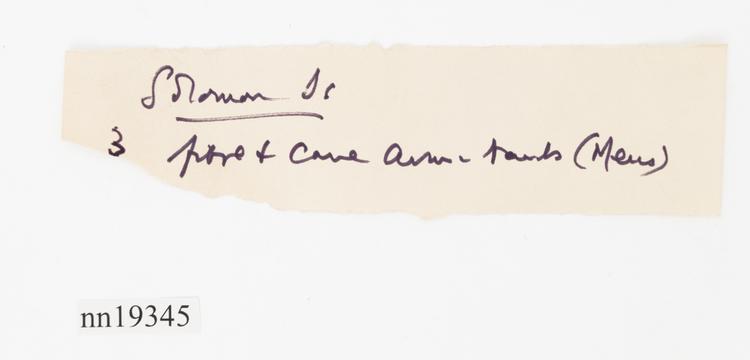 Solomon Is
3 fibre & Cane Arm-bands (Mens)
nn19345